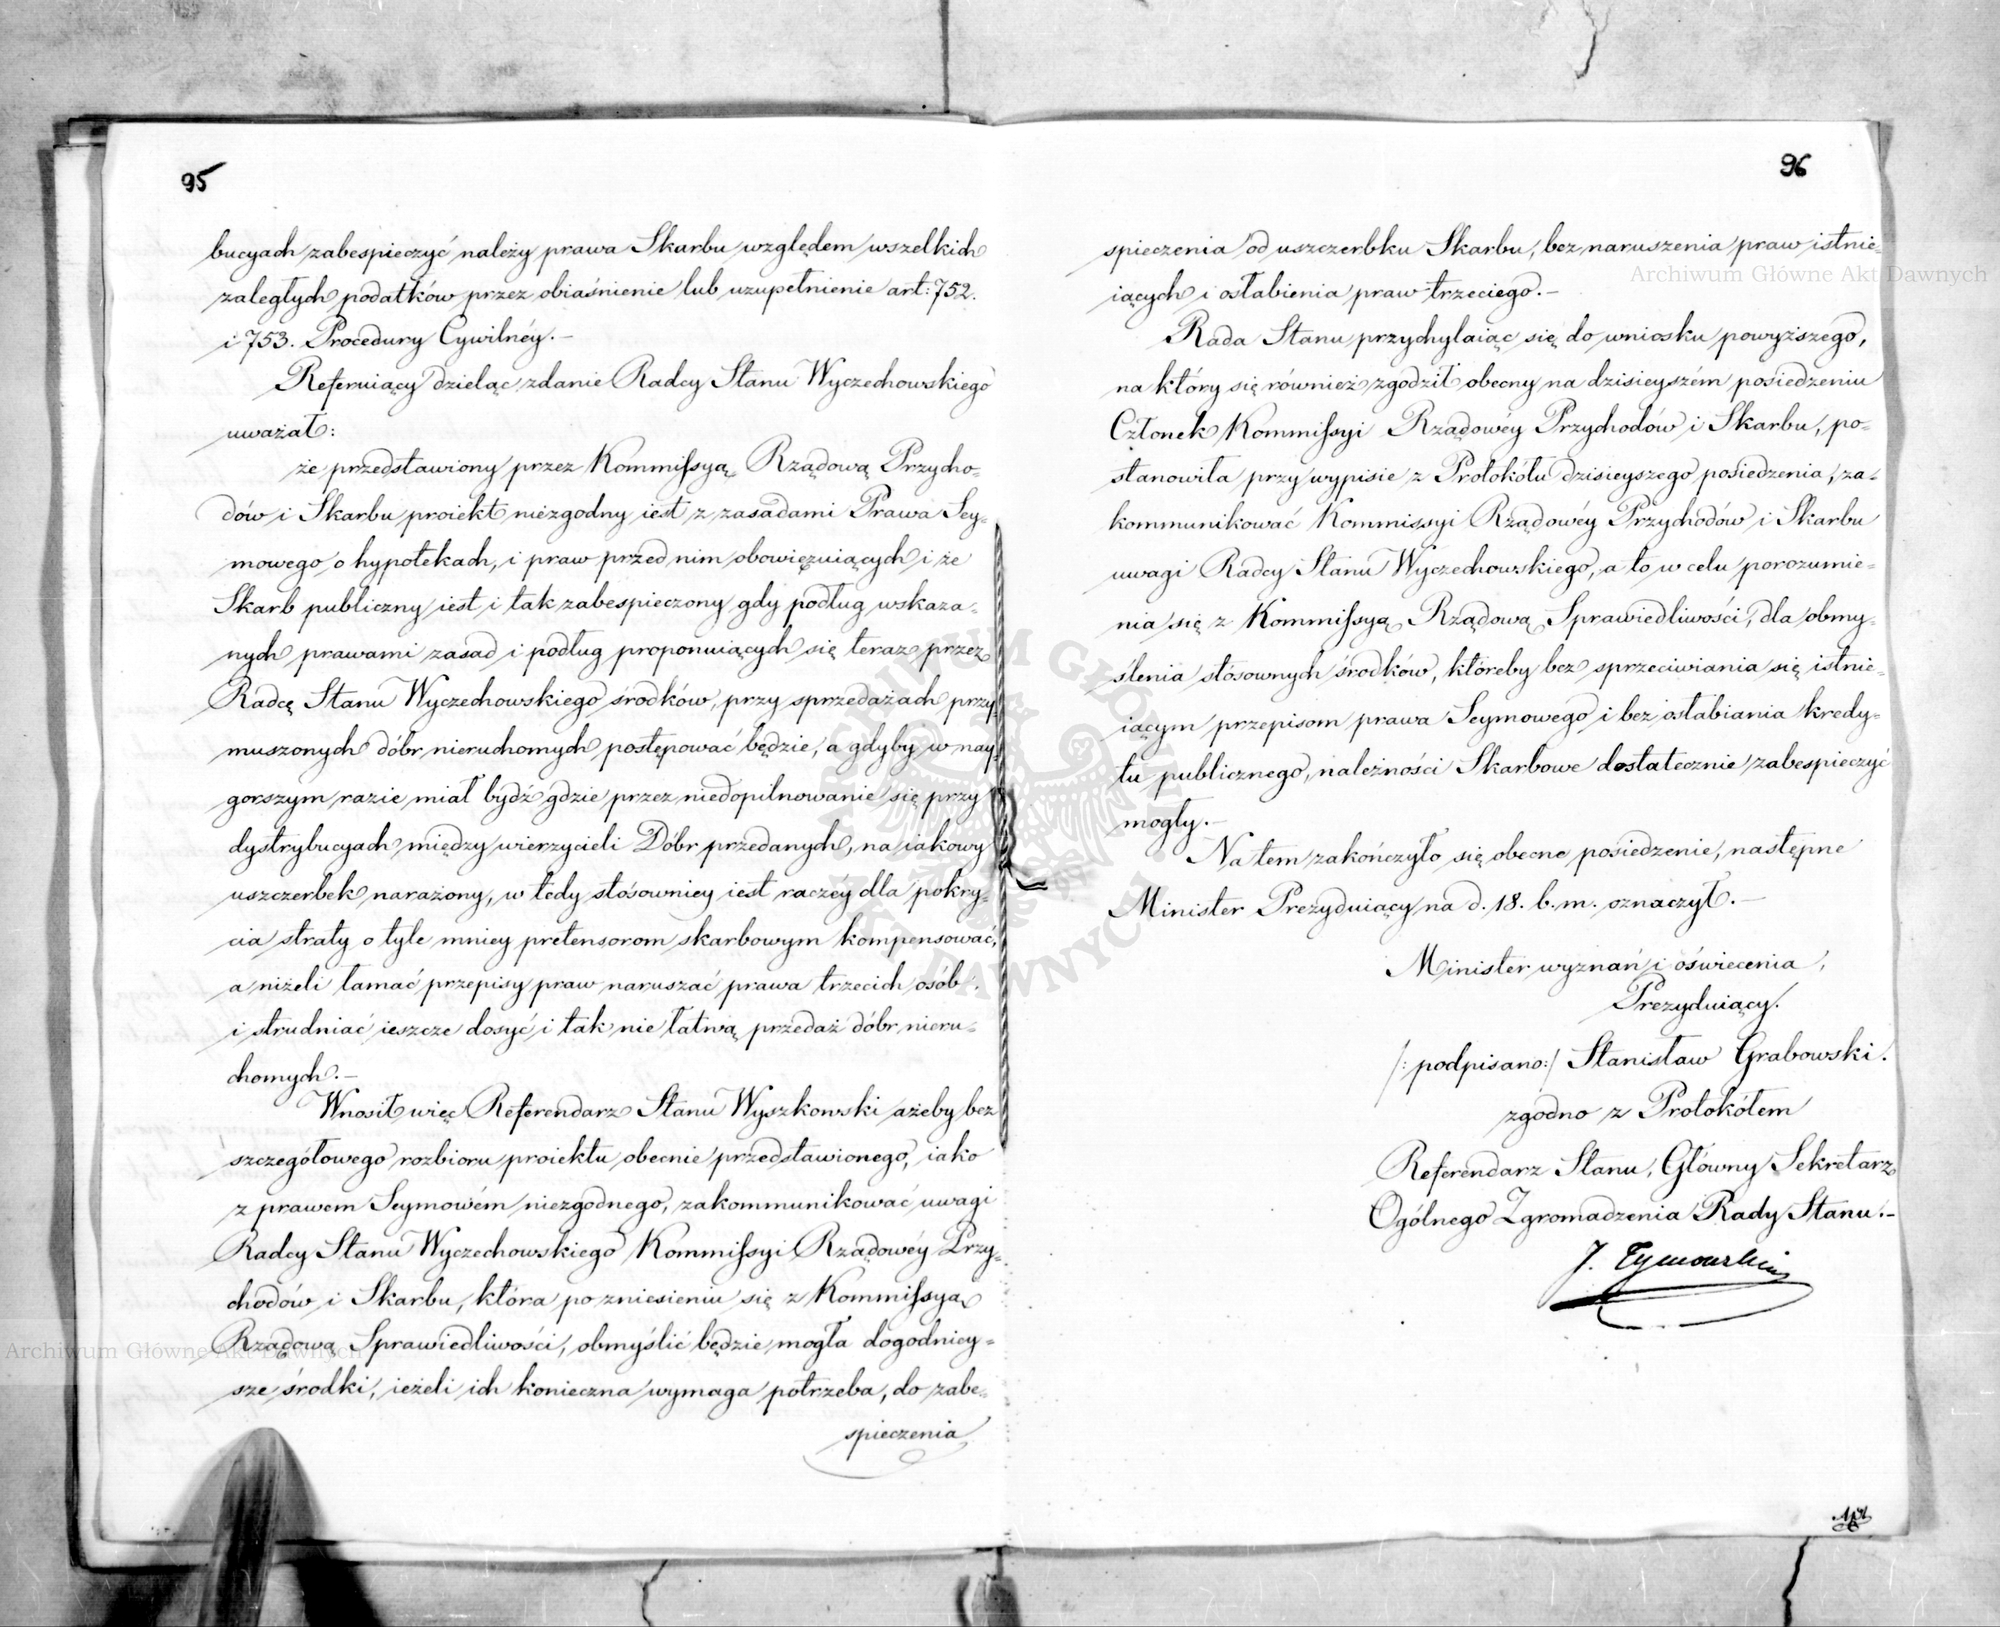 95
bucyach zabespieczyć należy prawa Skarbu względem wszelkich
zaległych podatków przez obiaśnienie lub uzupełnienie art: 752.
i 753. Procedury Cywilnéy.–
Referuiący dzieląc zdanie Radcy Stanu Wyczechowskiego
uważał:
że przedstawiony przez Kommissyą Rządową Przycho-
dów i Skarbu proiekt niezgodny iest z zasadami Prawa Sey-
mowego o hypotekach, i praw przed nim obowięzuiących i że
Skarb publiczny iest i tak zabespieczony gdy podług wskaza-
nych prawami zasad i podług proponuiących się teraz przez
Radcę Stanu Wyczechowskiego środków, przy sprzedażach przy-
muszonych dóbr nieruchomych postępować będzie, a gdyby w nay-
gorszym razie miał bydź gdzie przez niedopilnowanie się przy
dystrybucyach między wierzycieli Dóbr przedanych, na iakowy
uszczerbek narażony, w tedy stósowniey iest raczéy dla pokry-
cia straty o tyle mniey pretensorom skarbowym kompensować,
a niżeli łamać przepisy praw naruszać prawa trzecich osób,
i strudniać ieszcze dosyć i tak nie łatwą przedaż dóbr nieru-
chomych.–
Wnosił więc Referendarz Stanu Wyszkowski ażeby bez
szczegółowego rozbioru proiektu obecnie przedstawionego, iako
z prawem Seymowém niezgodnego, zakommunikować uwagi
Radcy Stanu Wyczechowskiego Kommissyi Rządowéy Przy-
chodów i Skarbu, która po zniesieniu się z Kommissyą
Rządową Sprawiedliwości, obmyślić będzie mogła dogodniey-
sze środki, ieżeli ich konieczna wymaga potrzeba, do zabe-
spieczenia
96
spieczenia od uszczerbku Skarbu, bez naruszenia praw istnie-
iących i osłabienia praw trzeciego.–
Rada Stanu przychylaiąc się do wniosku powyższego,
na który się również zgodził obecny na dzisieyszém posiedzeniu
Członek Kommissyi Rządowéy Przychodów i Skarbu, po-
stanowiła przy wypisie z Protokółu dzisieyszego posiedzenia, za-
kommunikować Kommissyi Rządowéy Przychodów i Skarbu
uwagi Radcy Stanu Wyczechowskiego, a to w celu porozumie-
nia się z Kommissyą Rządową Sprawiedliwości, dla obmy-
ślenia stósownych środków, któreby bez sprzeciwiania się istnie-
iącym przepisom prawa Seymowego i bez osłabiania kredy-
tu publicznego, należności Skarbowe dostatecznie zabespieczyć
mogły.–
Na tem zakończyło się obecne posiedzenie, następne
Minister Prezyduiący na d. 18. b. m. oznaczył.–
Minister wyznań i oświecenia,
Prezyduiący.
/: podpisano:/ Stanisław Grabowski.
zgodno z Protokółem
Referendarz Stanu, Główny Sekretarz
Ogólnego Zgromadzenia Rady Stanu.–
J. Tymowski
Archiwum Główne Akt Dawnych
Archiwum Główne Akt Dawnych
ARCHIWUM GŁÓWNE AKT DAWNYCH